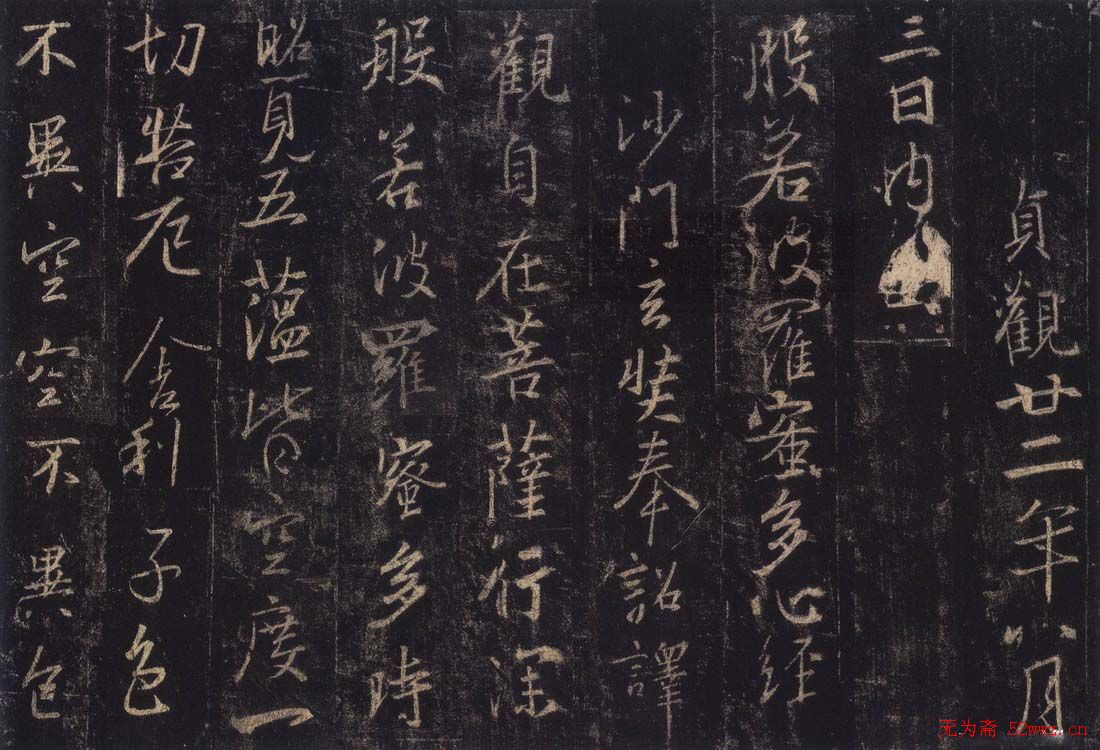 貞觀廿二年八月
三日内出
般若波羅蜜多心經
沙門玄奘奉詔譯
觀自在菩薩行深
般若波羅蜜多時
照見五蘊皆空度一
切苦厄舍利子色
不異空空不異色
无为斋 52wwz.cn